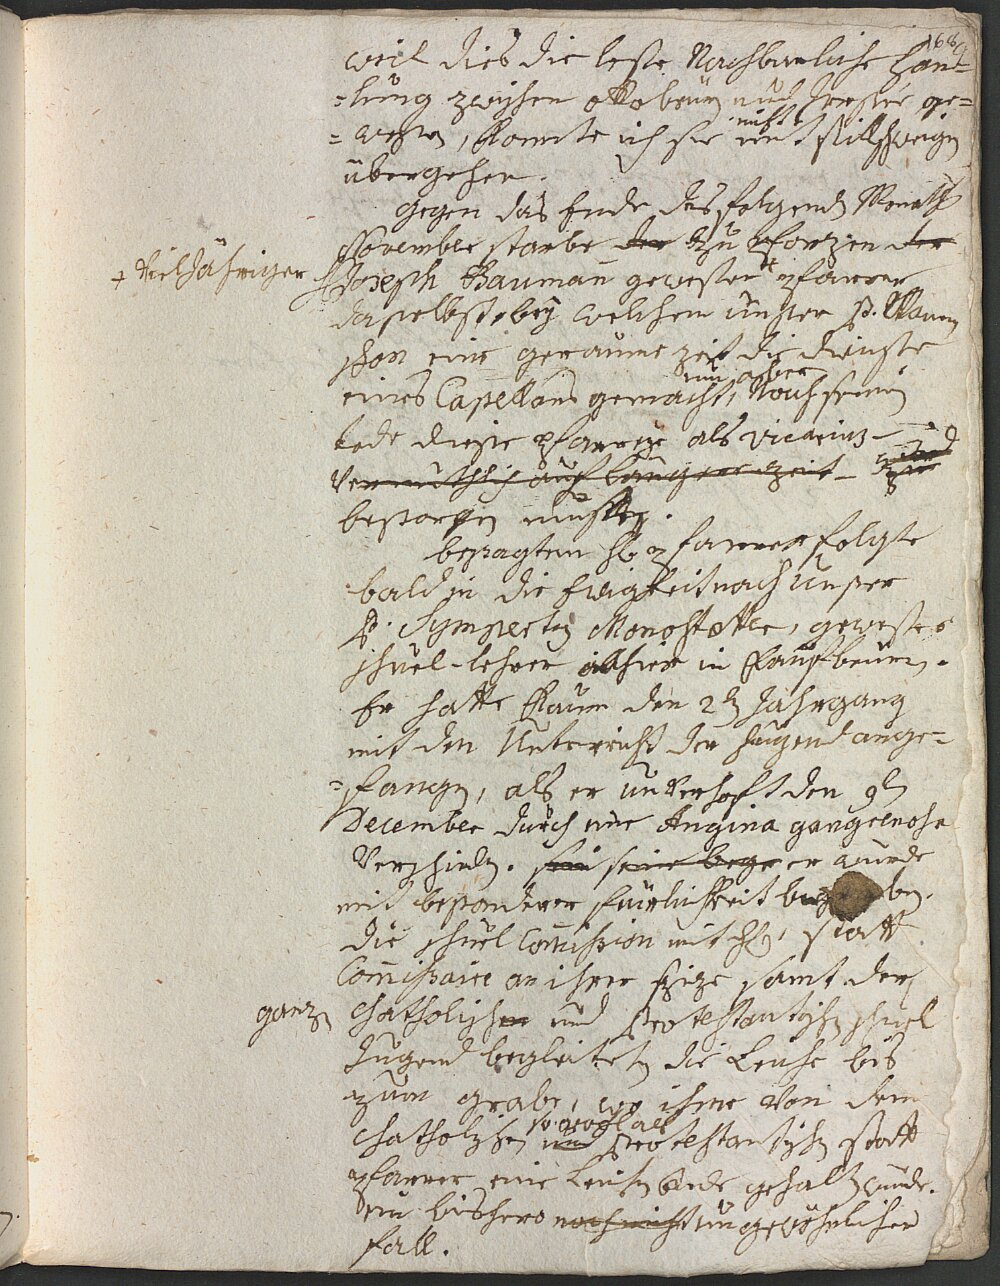 168
weil dies die leste Nachbarliche Hand=
=lung zwischen Ottobeürn und Irrsee ge=
=wesen, konnte ich sie nicht stillschweigen
übergehen.
Gegen das Ende des folgenden Monaths
November starbe der zu Pforzen der
+ Vieljähriger
Joseph Bauman gewester + Pfarrer
daselbst, bey welchem unser P.
schon eine geraume Zeit die dienste
eines Capellans gemacht, nun aber Nach seinem
tode diese Pfarrey als Vicarius
Vermuthlich auf langere Zeit
besorgen muste.
besagten H. Pfarrer folgte
bald in die Ewigkeit nach unser
P. Sympertus Monostatter, gewester
schuel-lehrer alhier in Kaufbeurn.
Er hatte kaum den 2ten Jahrgang
mit den Unterricht der Jugend ange=
=fangen, als er unverhoft den 9ten
December durch eine Angina gangrenosa
Verschieden. sein seine begr er wurde
mit besonderer feürlichkeit begraben.
die schuel Commission mit H. statt
Commissaire an ihrer spize samt der
ganzen
Chatholischen und Protestantischen schuel
Jugend begleiteten die Leiche bis
zum grabe, wo ihme von dem
Chatholischen und so wohl als Protestantischen statt
Pfarrer eine Leichenrede gehalten wurde.
ein bishero noch nicht ungewöhnlicher
fall.